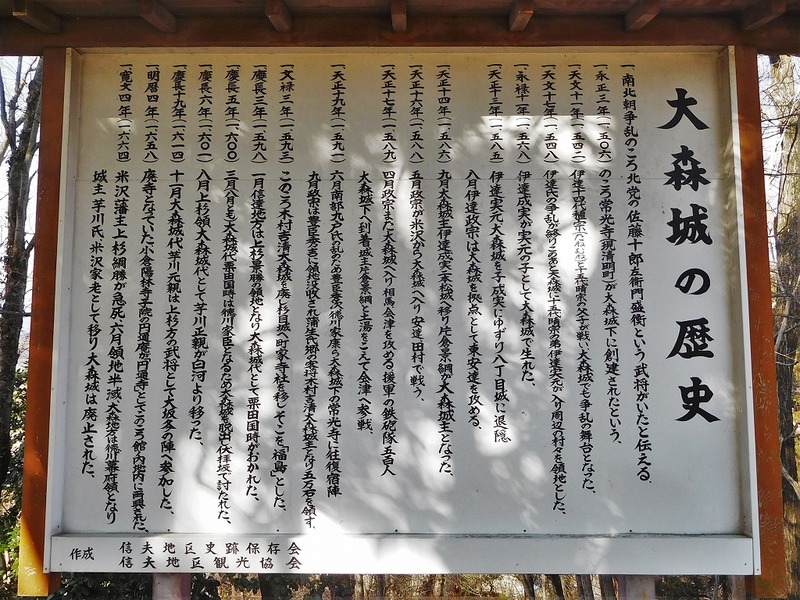 大森城の歴史
一、南北朝争乱のころ北党の佐藤十郎左衛門盛衡という武将がいたと伝える。
一、永正三年(一五〇六)のころ常光寺(現清明町)が大森城下に創建されたという。
一、天文十一年(一五四二)伊達十四代稙宗(たねむね)と十五代晴宗の父子が戦い大森城でも争乱の舞台となった、
一、天文十七年(一五四八)伊達氏の争乱が終りこの第と大森城に十五代晴宗の弟伊達実元が入り周辺の村々を領地とした、
一、永禄十一年(一五六八)伊達成実が実元の子として大森城で生れた、
一、天正十三年(一五八五)伊達実元大森城を子成実にゆずり八丁目城に退隠
八月伊達政宗は大森城を拠点として東安達を攻める、
一、天正十四年(一五八六)九月大森城主伊達成実二本松城へ移り片倉景綱が大森城主となった、
一、天正十六年(一五八八)五月政宗が米沢から大森城へ入り安達田村で戦う、
一、天正十七年(一五八九)四月政宗また大森城へ入り相馬会津を攻める 援軍の鉄砲隊五百人
大森城下へ到着城主片倉景綱は土湯をこえて会津へ参戦、
一、天正十九年(一五九一)六月南部九戸氏の乱のため豊臣秀次徳川家康ら大森城下の常光寺に往復宿陣
九月政宗は豊臣秀吉に領地没収され蒲生氏郷の客将木村吉清大森城主となり五万石を領す、
一、文禄三年(一五九三)このころ木村吉清大森城を廃し杉目城へ町家寺社を移しそこを「福島」とした、
一、慶長三年(一五九八)一月信達地方は上杉景勝の領地となり大森城代として栗田国時がおかれた、
一、慶長五年(一六〇〇)三月八日大森城代栗田国時は徳川家臣となるため大森城を脱出し伏拝坂で討たれた、
一、慶長六年(一六〇一)八月上杉領大森城代として芋川正親が白河より移った、
一、慶長十九年(一六一四)十一月大森城代芋川元親は上杉方の武将として大坂冬の陣へ参加した、
一、明暦四年(一六五八)廃寺となっていた小倉陽林寺子院の円通庵が円通寺としてこのころ館ノ内地内に再興された、
一、寛文四年(一六六四)米沢藩主上杉綱勝が急死、六月領地半減、大森地方は徳川幕府領となり
城主芋川氏、米沢家老として移り大森城は廃止された、
作成 信夫地区史跡保存会
信夫地区観光協会